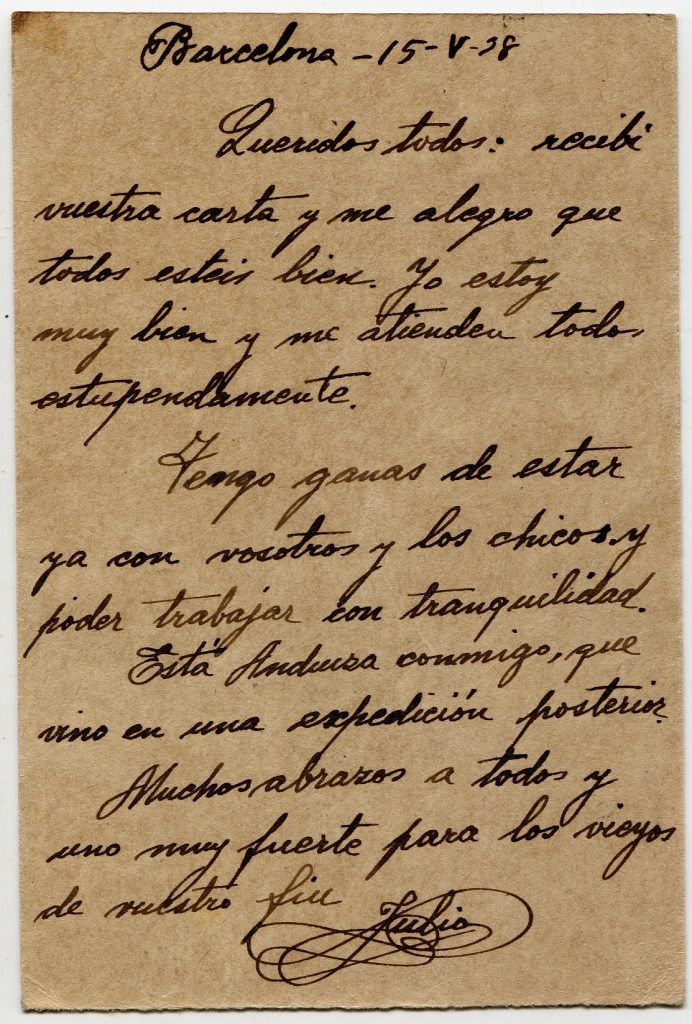 Barcelona - 15-V-38
Queridos todos: recibí
vuestra carta y me alegro que
todos esteis bien. Yo estoy
muy bien y me atienden todos
estupendamente.
Tengo ganas de estar
ya con vosotros y los chicos y
poder trabajar con tranquilidad.
Está conmigo, que
vino en una expedición posterior.
Muchos abrazos a todos y
uno muy fuerte para los vieyos
de vuestro fiu
Julio